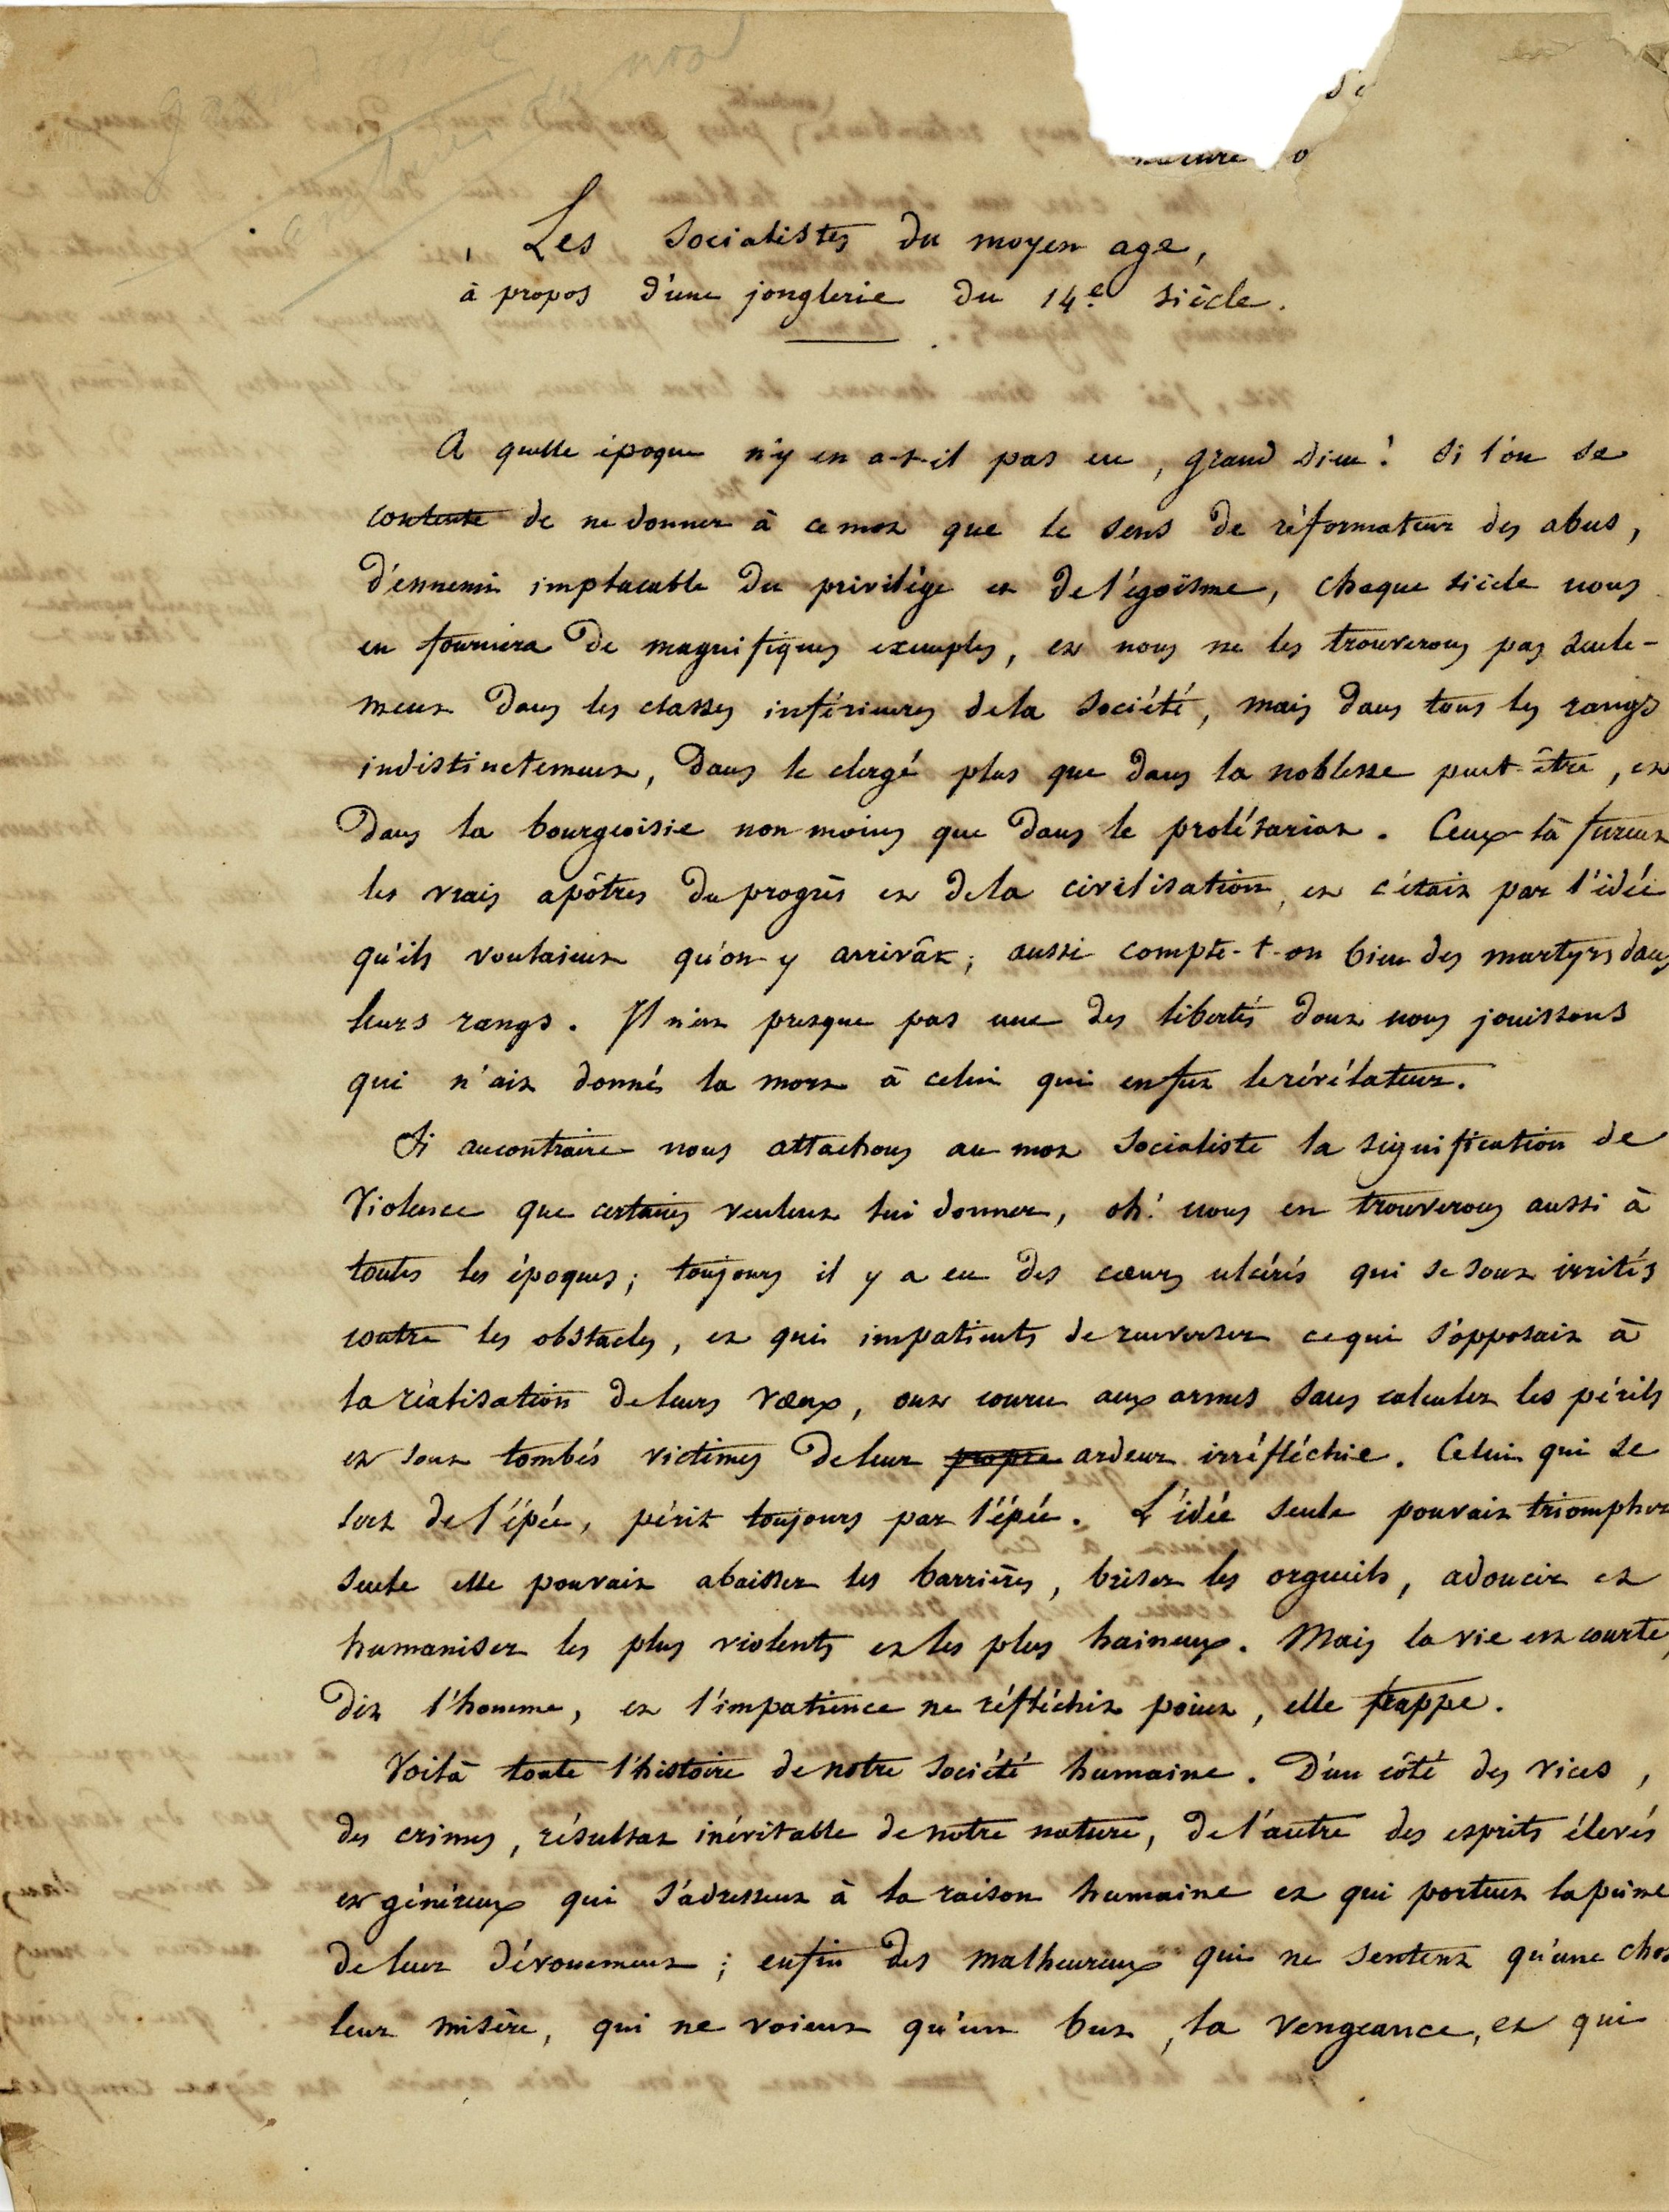 Les Socialistes du moyen age,
à propos d'une jonglerie du 14e siècle.
A quelle époque n'y en a-t-il pas eu, grand dieu! Si l'on se
contente de ne donner à ce mot que le sens de réformateur des abus,
d'ennemi implacable du privilège et de l'égoïsme, chaque siècle nous
en fournira de magnifiques exemples, et nous ne les trouverons pas seule-
ment dans les classes inférieures de la société, mais dans tous les rangs
indistinctement, dans le clergé plus que dans la noblesse peut-être, et
dans la bourgeoisie non moins que dans le prolétariat. Ceux-là furent
les vrais apôtres du progrès et de la civilisation, et c'était par l'idée
qu'ils voulaient qu'on y arrivât; aussi compte-t-on bien des martyrs dans
leurs rangs. Il n'est presque pas une des libertés dont nous jouissons
qui n'ait donnés la mort à celui qui en fut le révélateur.
Si au contraire nous attachons au mot Socialiste la signification de
violence que certains veulent lui donner, oh! nous en trouverons aussi à
toutes les époques; toujours il y a eu des cœurs ulcérés qui se sont irrités
contre les obstacles, et qui impatients de renverser ce qui s'opposait à
la réalisation de leurs vœux, ont couru aux armes sans calculer les périls
et sont tombés victimes de leur propre ardeur irréfléchie. Celui qui se
sert de l'épée, périt toujours par l'épée. L'idée seule pouvait triompher
seule elle pouvait abaisser les barrières, briser les orgueils, adoucir et
humaniser les plus violents et les plus haineux. Mais la vie est courte,
dit l'homme, et l'impatience ne réfléchit point, elle frappe.
Voilà toute l'histoire de notre société humaine. D'un côté des vices,
des crimes, résultat inévitable de notre nature, de l'autre des esprits élevés
et généreux qui s'adressent à la raison humaine et qui portent la peine
de leur dévouement; enfin des malheureux qui ne sentent qu'une chos
leur misère, qui ne voient qu'un but, la vengeance, et qui